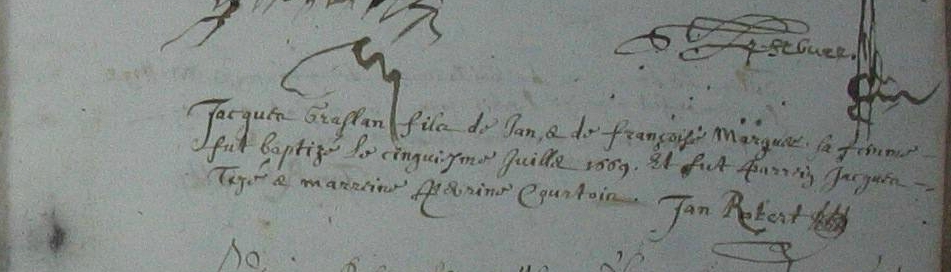 Jacques Graslan fils de Jan, & de françoise Marques sa femme
fut baptizé le cinquiesme Juille 1669. Et fut Parrein Jacques
& marreine Perrine Courtois.
Jan Robert